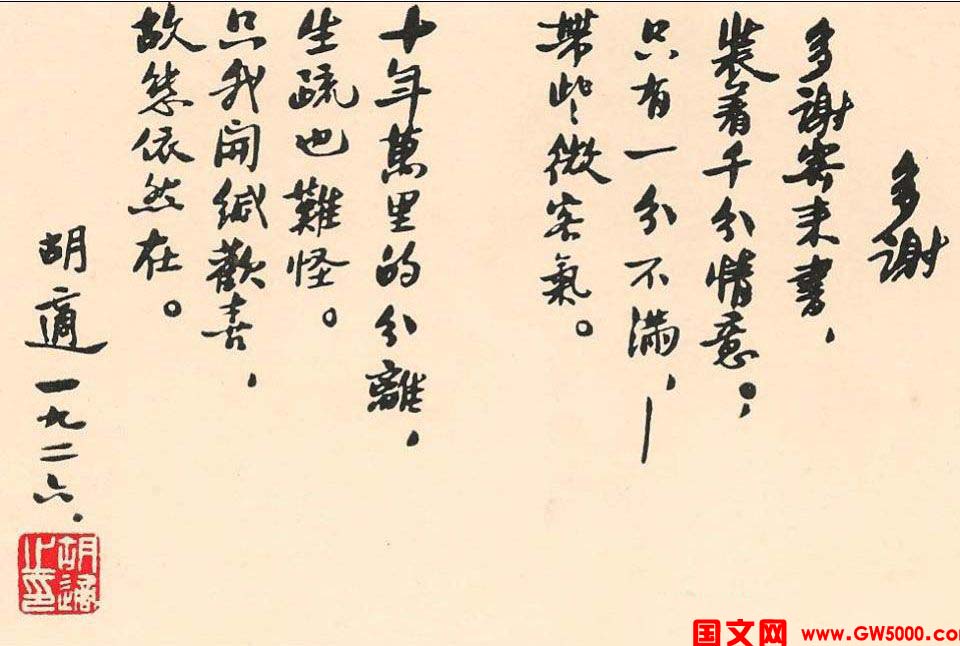 多謝
多謝寄来書，
裝着千分情意。，
只有一分不滿，—
帶些微客氣。
十年萬里的分離，
生疏也難怪。
只我開緘歡喜，
故態依然在。
胡適 一九二六，
胡適之印
国文网 www.GW5000.com